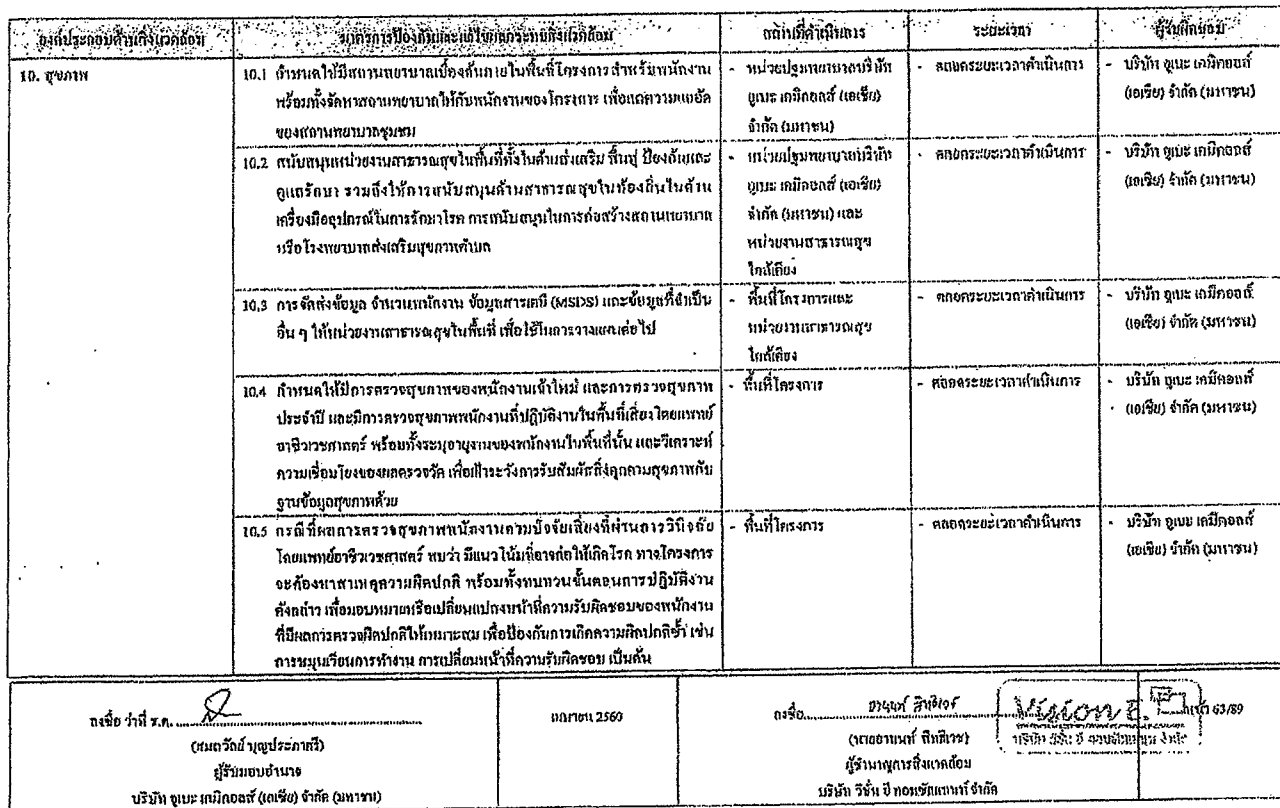 องค์ประกอบด้านสิ่งแวดล้อม
มาตรการป้องกันและแก้ไขผลกระทบสิ่งแวดล้อม
สถานที่ดำเนินการ
ระยะเวลา
ผู้รับผิดชอบ
10. สุขภาพ
10.1 กำหนดให้มีสถานพยาบาลเบื้องต้นภายในพื้นที่โครงการ สำหรับพนักงาน
พร้อมทั้งจัดหาสถานพยาบาลให้กับพนักงานของโครงการ เพื่อลดความแออัด
ของสถานพยาบาลชุมชน
- หน่วยปฐมพยาบาลบริษัท
ยูเบะ เคมิคอลส์ (เอเชีย)
จำกัด (มหาชน)
- ตลอดระยะเวลาดำเนินการ
- บริษัท ยูเบะ เคมิคอลส์
(เอเชีย) จำกัด (มหาชน)
10.2 สนับสนุนหน่วยงานสาธารณสุขในพื้นที่ทั้งในด้านส่งเสริม ฟื้นฟู ป้องกันและ
ดูแลรักษา รวมถึงให้การสนับสนุนด้านสาธารณสุขในท้องถิ่นในด้าน
เครื่องมืออุปกรณ์ในการรักษาโรค การสนับสนุนในการก่อสร้างสถานพยาบาล
หรือโรงพยาบาลส่งเสริมสุขภาพตำบล
- หน่วยปฐมพยาบาลบริษัท
ยูเบะ เคมิคอลส์ (เอเชีย)
จำกัด (มหาชน) และ
หน่วยงานสาธารณสุข
ใกล้เคียง
- ตลอดระยะเวลาดำเนินการ
- บริษัท ยูเบะ เคมิคอลส์
(เอเชีย) จำกัด (มหาชน)
10.3 การจัดส่งข้อมูล จำนวนพนักงาน ข้อมูลสารเคมี (MSDS) และข้อมูลที่จำเป็น
อื่น ๆ ให้หน่วยงานสาธารณสุขในพื้นที่ เพื่อใช้ในการวางแผนต่อไป
- พื้นที่โครงการและ
หน่วยงานสาธารณสุข
ใกล้เคียง
- ตลอดระยะเวลาดำเนินการ
- บริษัท ยูเบะ เคมีคอลส์
(เอเชีย) จำกัด (มหาชน)
10.4 กำหนดให้มีการตรวจสุขภาพของพนักงานเข้าใหม่ และการตรวจสุขภาพ
ประจำปี และมีการตรวจสุขภาพพนักงานที่ปฏิบัติงานในพื้นที่เสี่ยง โดยแพทย์
อาชีวเวชศาสตร์ พร้อมทั้งระบุอายุงานของพนักงานในพื้นที่นั้น และวิเคราะห์
ความเชื่อมโยงของผลตรวจวัด เพื่อเฝ้าระวังการรับสัมผัสสิ่งคุกคามสุขภาพกับ
ฐานข้อมูลสุขภาพด้วย
- พื้นที่โครงการ
- ตลอดระยะเวลาดำเนินการ
- บริษัท ยูเบะ เคมีคอลส์
(เอเชีย) จำกัด (มหาชน)
10.5 กรณีที่ผลการตรวจสุขภาพพนักงานตามปัจจัยเสี่ยงที่ผ่านการวินิจฉัย
โดยแพทย์อาชีวเวชศาสตร์ พบว่า มีแนวโน้มที่อาจก่อให้เกิดโรค ทางโครงการ
จะต้องหาสาเหตุความผิดปกติ พร้อมทั้งทบทวนขั้นตอนการปฏิบัติงาน
ดังกล่าว เพื่อมอบหมายหรือเปลี่ยนแปลงหน้าที่ความรับผิดชอบของพนักงาน
ที่มีผลการตรวจผิดปกติให้เหมาะสม เพื่อป้องกันการเกิดความผิดปกติซ้ำ เช่น
การหมุนเวียนการทำงาน การเปลี่ยนหน้าที่ความรับผิดชอบ เป็นต้น
- พื้นที่โครงการ
- ตลอดระยะเวลาดำเนินการ
- บริษัท ยูเบะ เคมีคอลส์
(เอเชีย) จำกัด (มหาชน)
ลงชื่อ ว่าที่ ร.ต.
(สมถวัลย์ บุญประภาศรี)
ผู้รับมอบอำนาจ
บริษัท ยูเบะ เคมิคอลส์ (เอเชีย) จำกัด (มหาชน)
มกราคม 2560
ลงชื่อ
(นายอานนท์ สิทธิเวช)
ผู้ชำนาญการสิ่งแวดล้อม
บริษัท วิชั่น อี คอนซัลแทนท์ จำกัด
Vision E.
บริษัท วิชั่น อี คอนซัลแทนท์ จำกัด
63/89